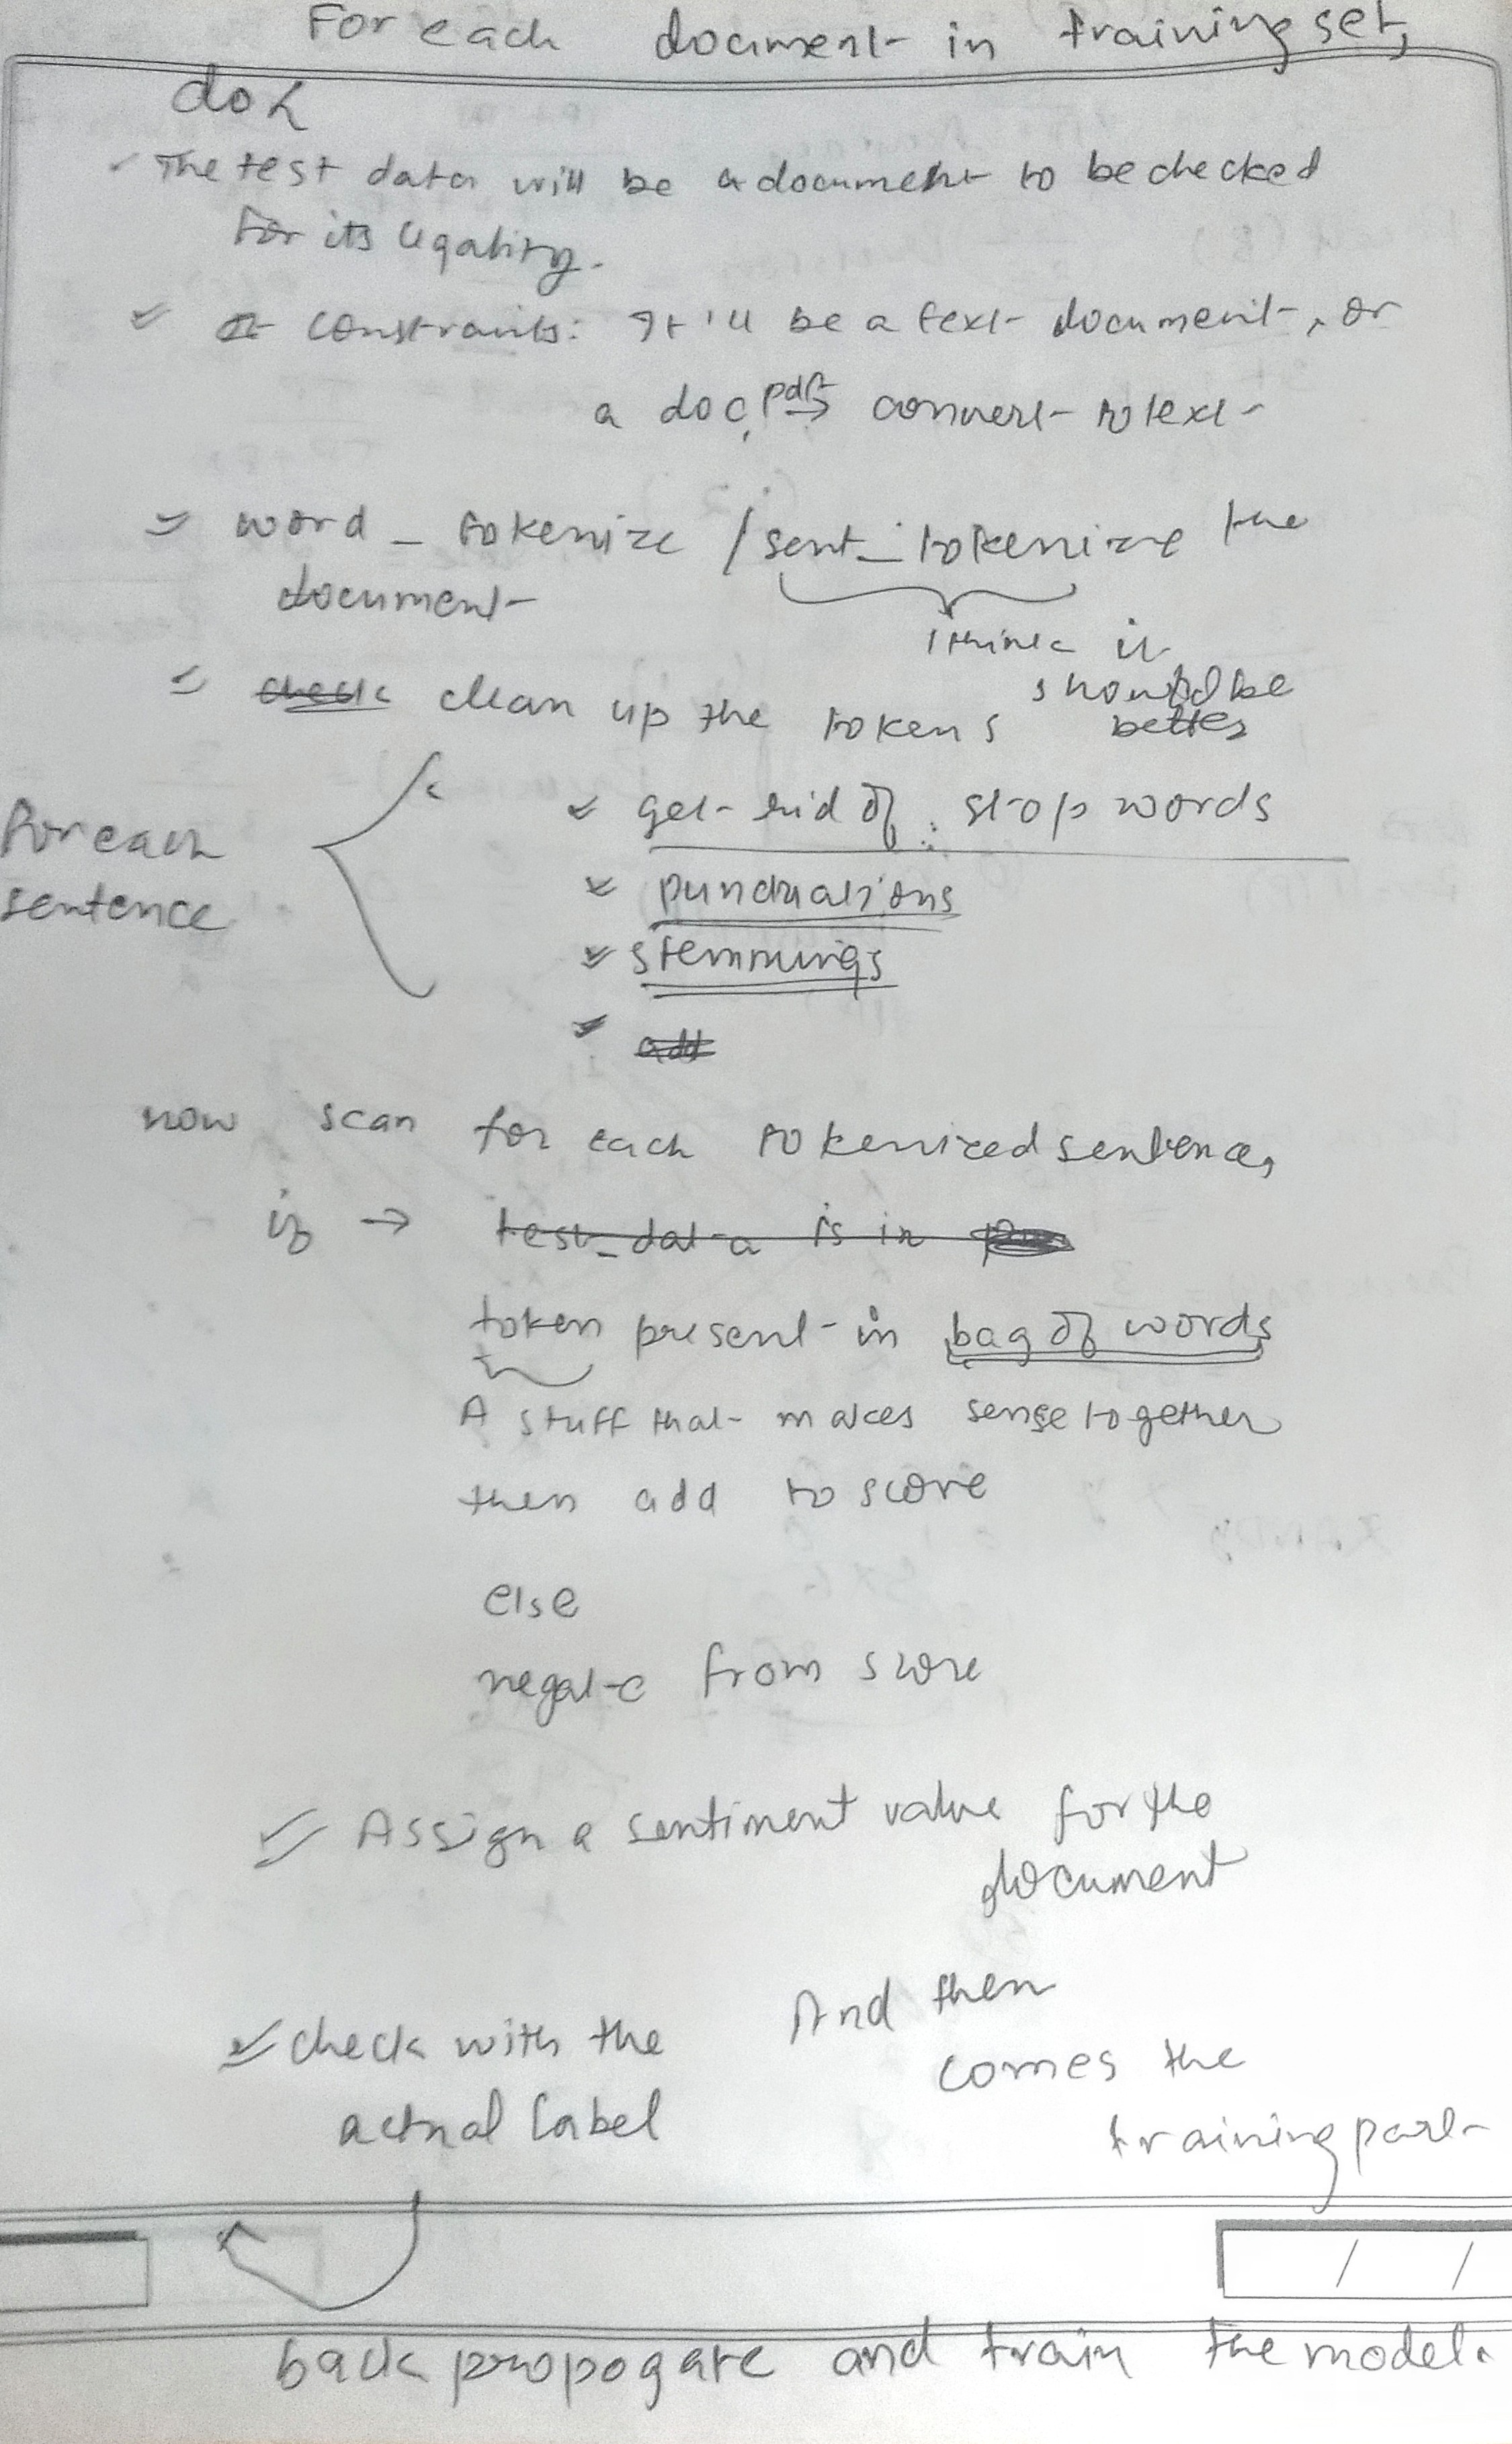 For each document in training set,
do {
The test data will be a document to be checked
for its legality.
constraints: It'll be a text document, or
a doc, pdf → convert to text
word_tokenize / sent_tokenize the
document
I think it
should be
better
check clean up the tokens
get rid of: stop words
For each
sentence
punctuations
stemmings
add
now scan for each tokenized sentence,
if → test_data is in
token present in bag of words
A stuff that makes sense together
then add to score
else
negate from score
Assign a sentiment value for the
document
check with the
actual label
And then
comes the
training part
back propogate and train the model.